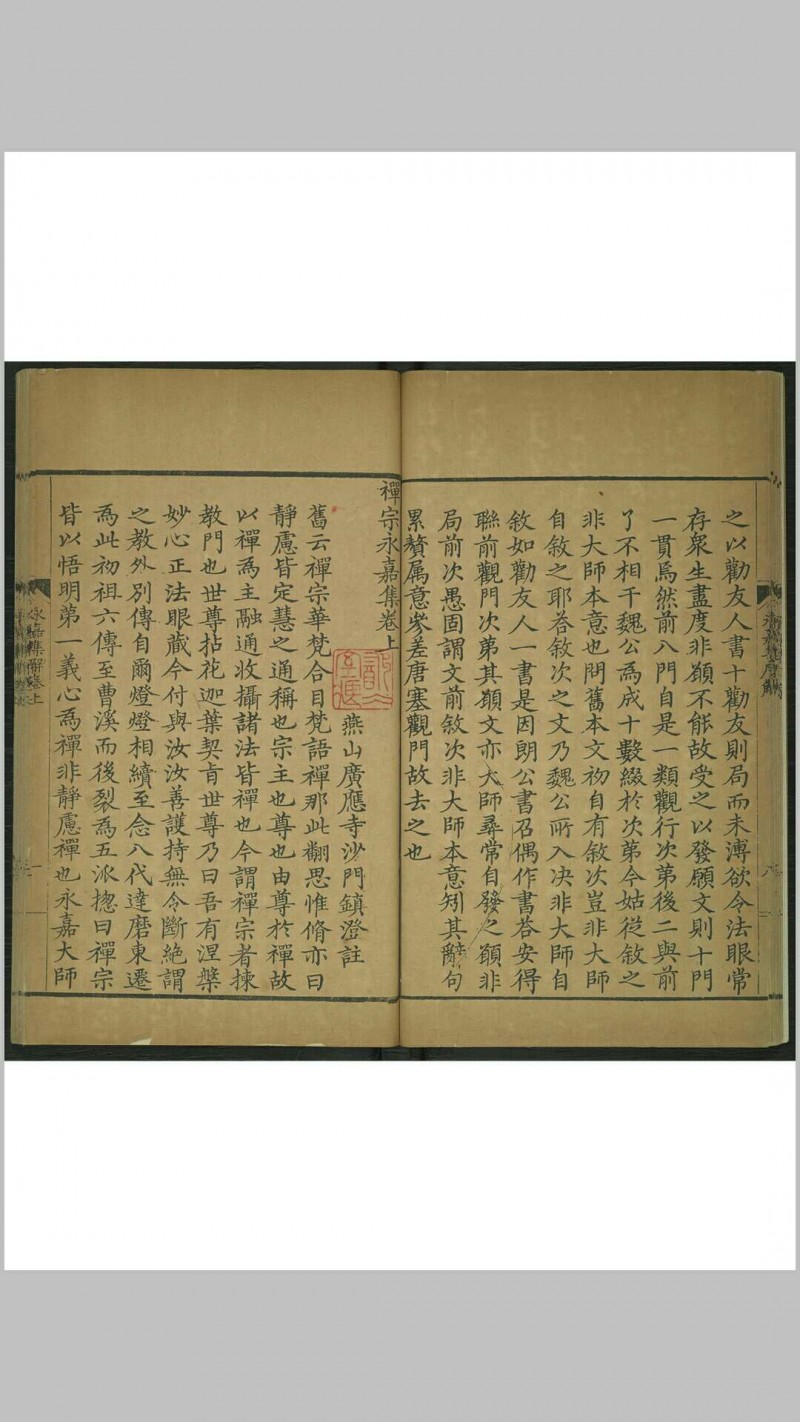 之以勸友人書十勸友則局而未溥欲令法眼常
存衆生盡度非願不能故受之以發願文則十門
一貫焉然前八門自是一類觀行次第後二與前
了不相干魏公為成十數綴於次第今姑從敘之
非大師本意也問舊本文初自有敘次豈非大師
自敘之耶荅敘次之文乃魏公所入決非大師自
敘如勸友人一書是因朗公書召偶作書荅安得
聯前觀門次第其願文亦大師尋常自發之願非
局前次愚固謂文前敘次非大師本意矧其辭句
累贅属意參差唐塞觀門故去之也
禪宗永嘉集卷上
燕山廣應寺沙門鎮澄註
舊云禪宗華梵合目梵語禪那此翻思惟脩亦曰
靜慮皆定慧之通稱也宗主也尊也由尊於禪故
以禪為主融通收攝諸法皆禪也今謂禪宗者揀
教門也世尊拈花迦葉契肯世尊乃曰吾有涅槃
妙心正法眼藏今付與汝汝善護持無令斷絕謂
之教外別傳自爾燈燈相續至念八代達磨東遷
為此初祖六傳至曹溪而後裂為五派揔曰禪宗
皆以悟明第一義心為禪非靜慮禪也永嘉大師